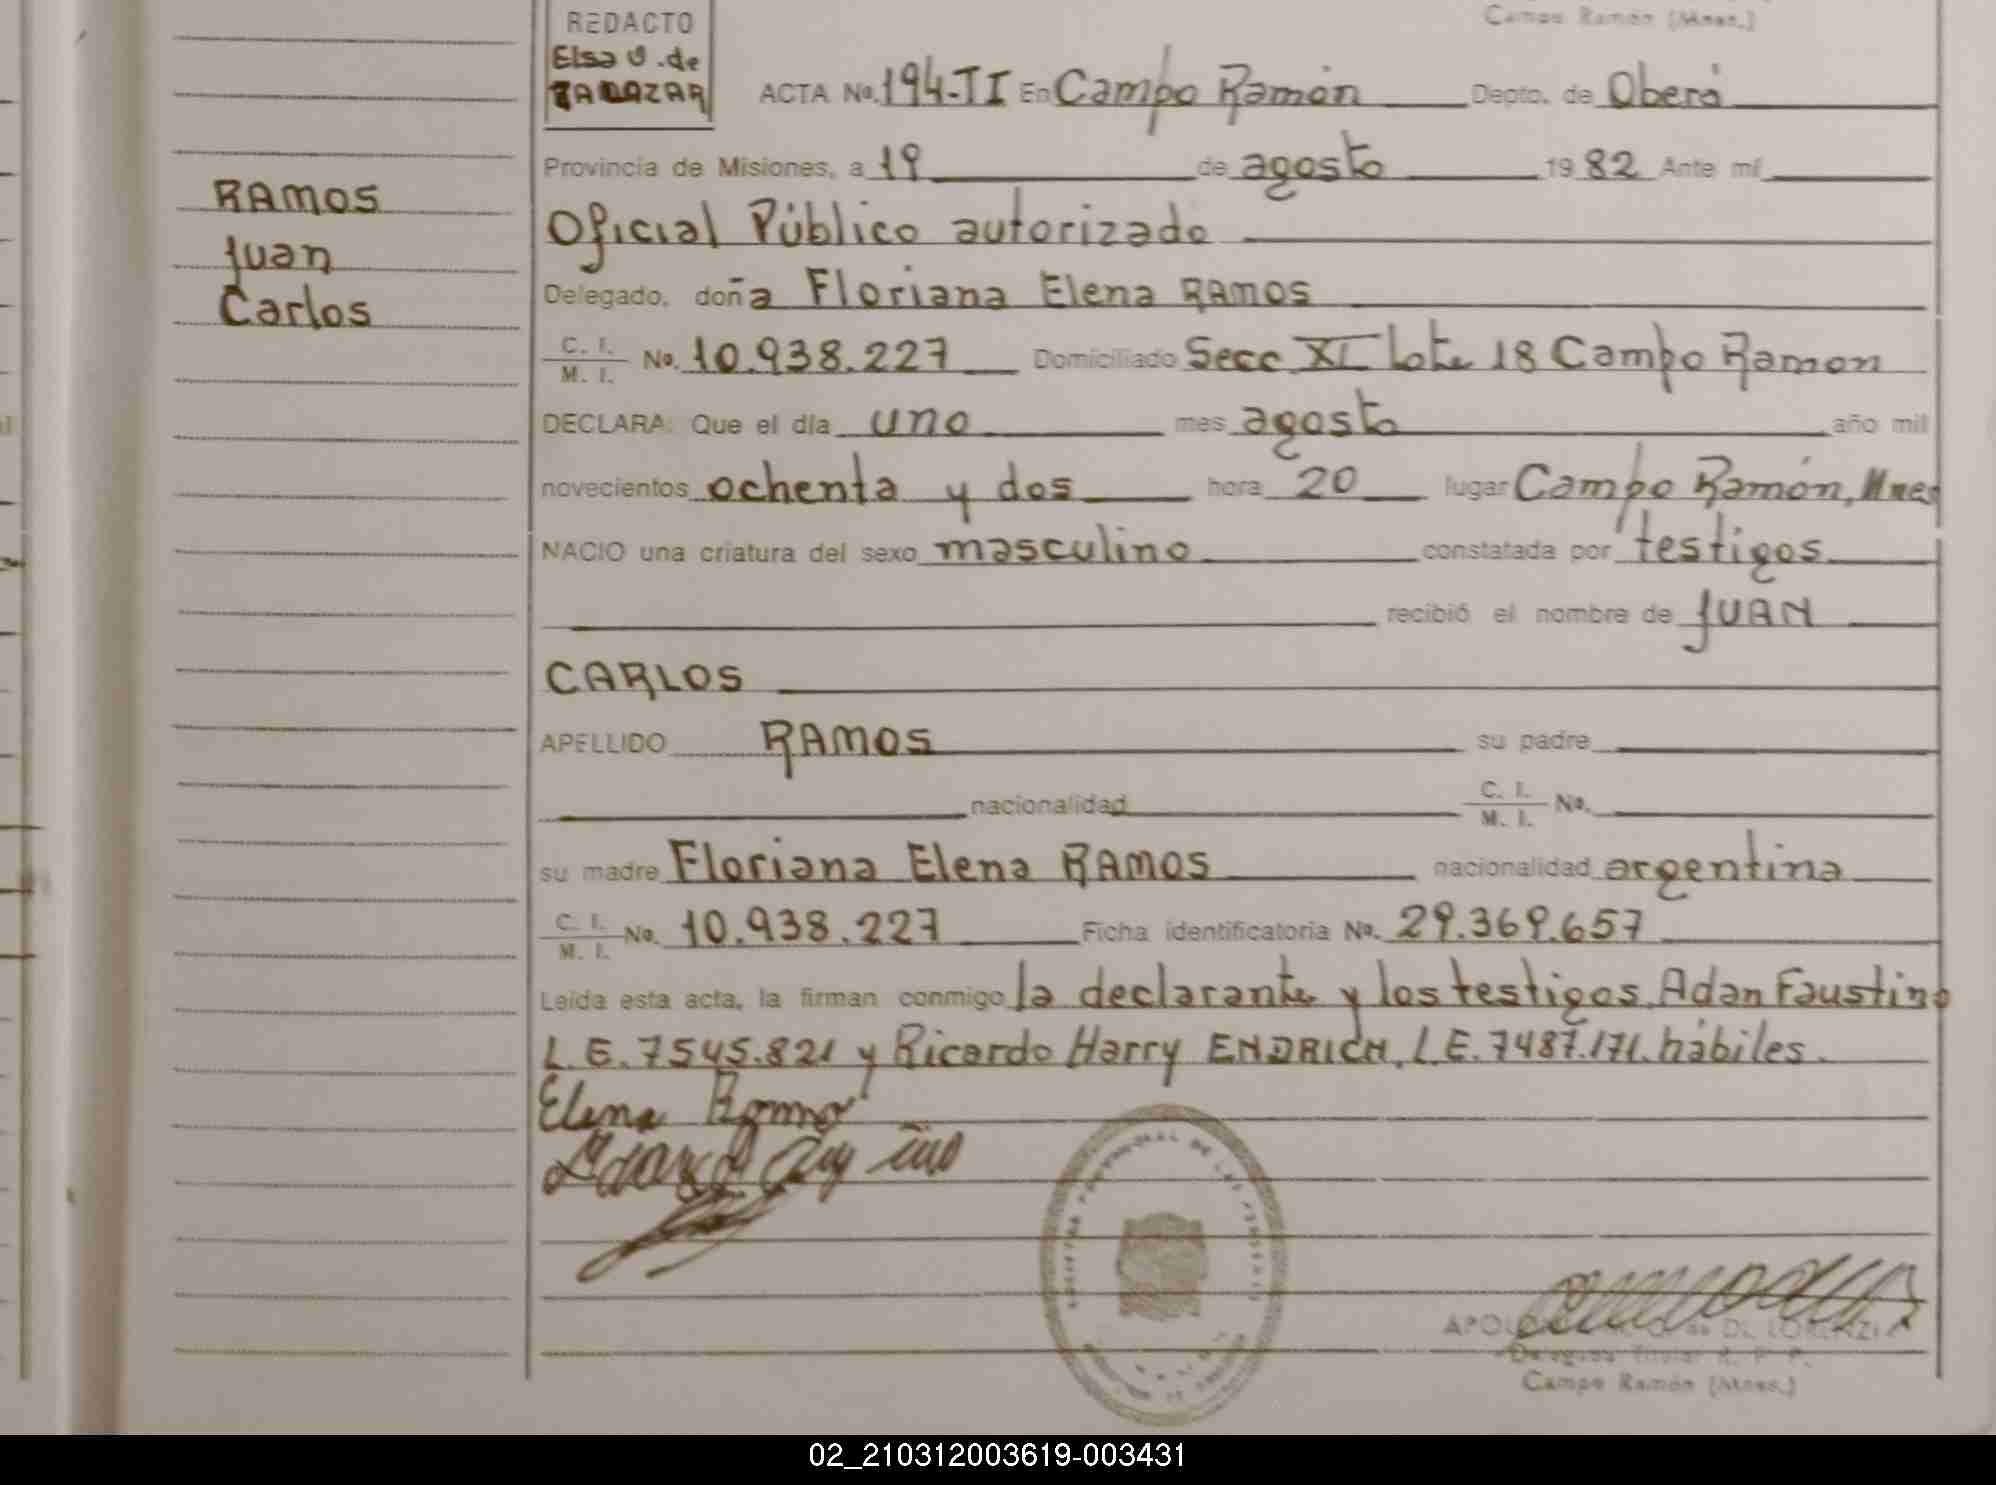 Campo Ramón (Mnes.)
REDACTO
Elsa O. de
ZALAZAR
ACTA No. 194-II En Campo Ramón Depto. de Oberá
Provincia de Misiones, a 19 de agosto 1982 Ante mí
RAMOS
Oficial Público autorizado
Juan
Delegado, doña Floriana Elena RAMOS
Carlos
C. I.
M. I. No. 10.938.227 Domiciliado Secc XI lote 18 Campo Ramon
DECLARA: Que el día uno mes agosto año mil
novecientos ochenta y dos hora 20 lugar Campo Ramón, Mnes
NACIO una criatura del sexo masculino constatada por testigos
recibió el nombre de JUAN
CARLOS
APELLIDO RAMOS su padre
nacionalidad C. I.
M. I. No.
su madre Floriana Elena RAMOS nacionalidad argentina
C. I.
M. I. No. 10.938.227 Ficha identificatoria No. 29.369.657
Leída esta acta, la firman conmigo la declarante y los testigos Adan Faustino
L.E. 7545.821 y Ricardo Harry ENDRICH. L.E. 7487.171. hábiles.
Elena Ramos
DE LAS PERSONAS
DI LORENZI
Delegada Titular R. P. P.
Campo Ramón (Mnes.)
02_210312003619-003431